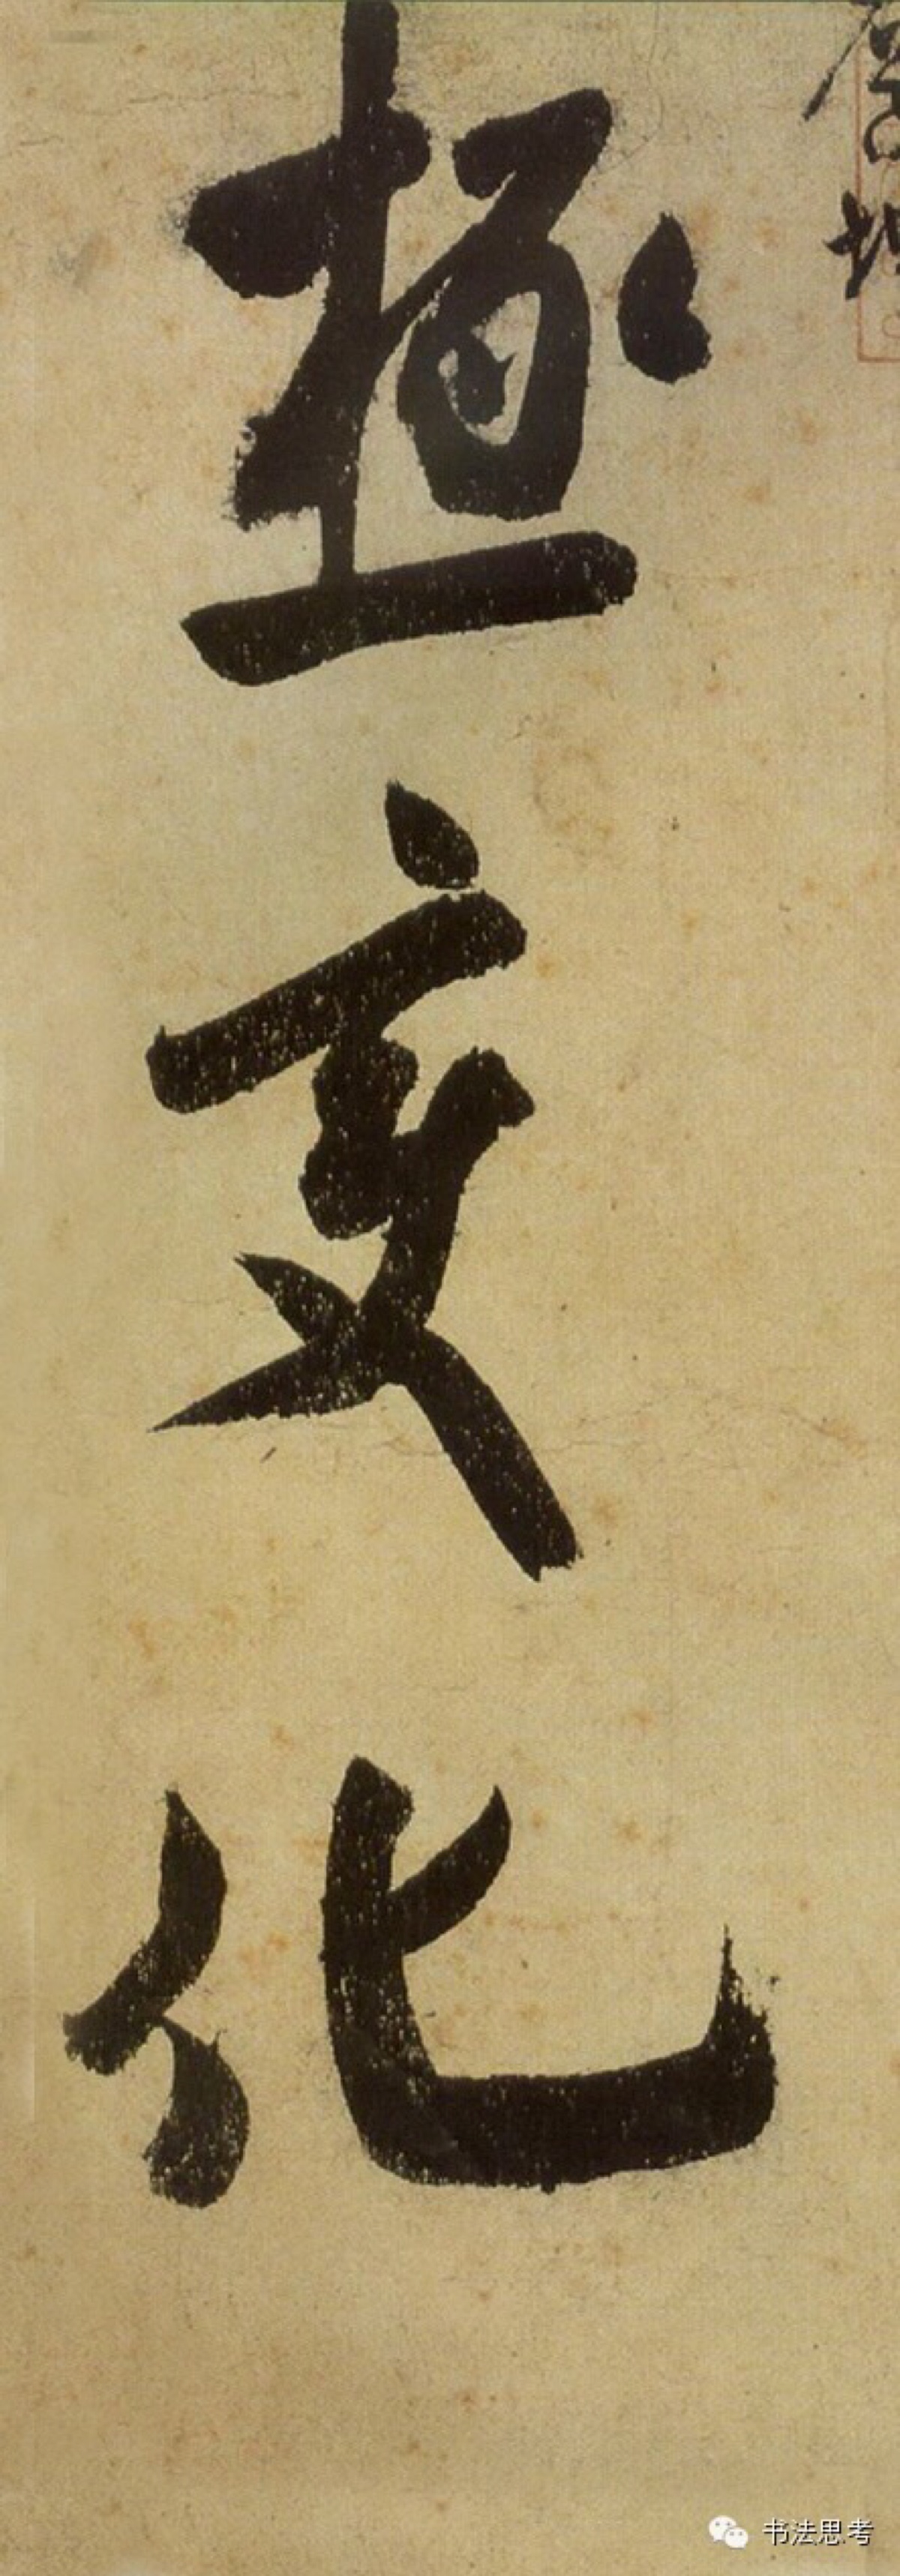 極変化
书法思考